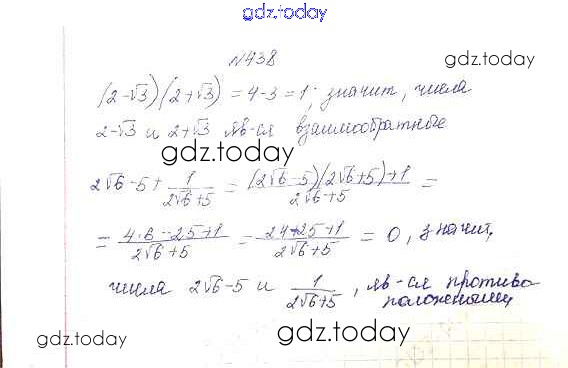 gdz.today
№438
gdz.today
(2-√3)(2+√3) = 4-3 = 1; значит, числа
2-√3 и 2+√3 яв-ся взаимообратные
gdz.today
2√6-5+ 1/(2√6+5) = ((2√6-5)(2√6+5)+1)/(2√6+5) =
= (4·6-25+1)/(2√6+5) = (24-25+1)/(2√6+5) = 0, значит,
gdz.today
числа 2√6-5 и 1/(2√6+5), яв-ся противо
положными
gdz.today
gdz.today